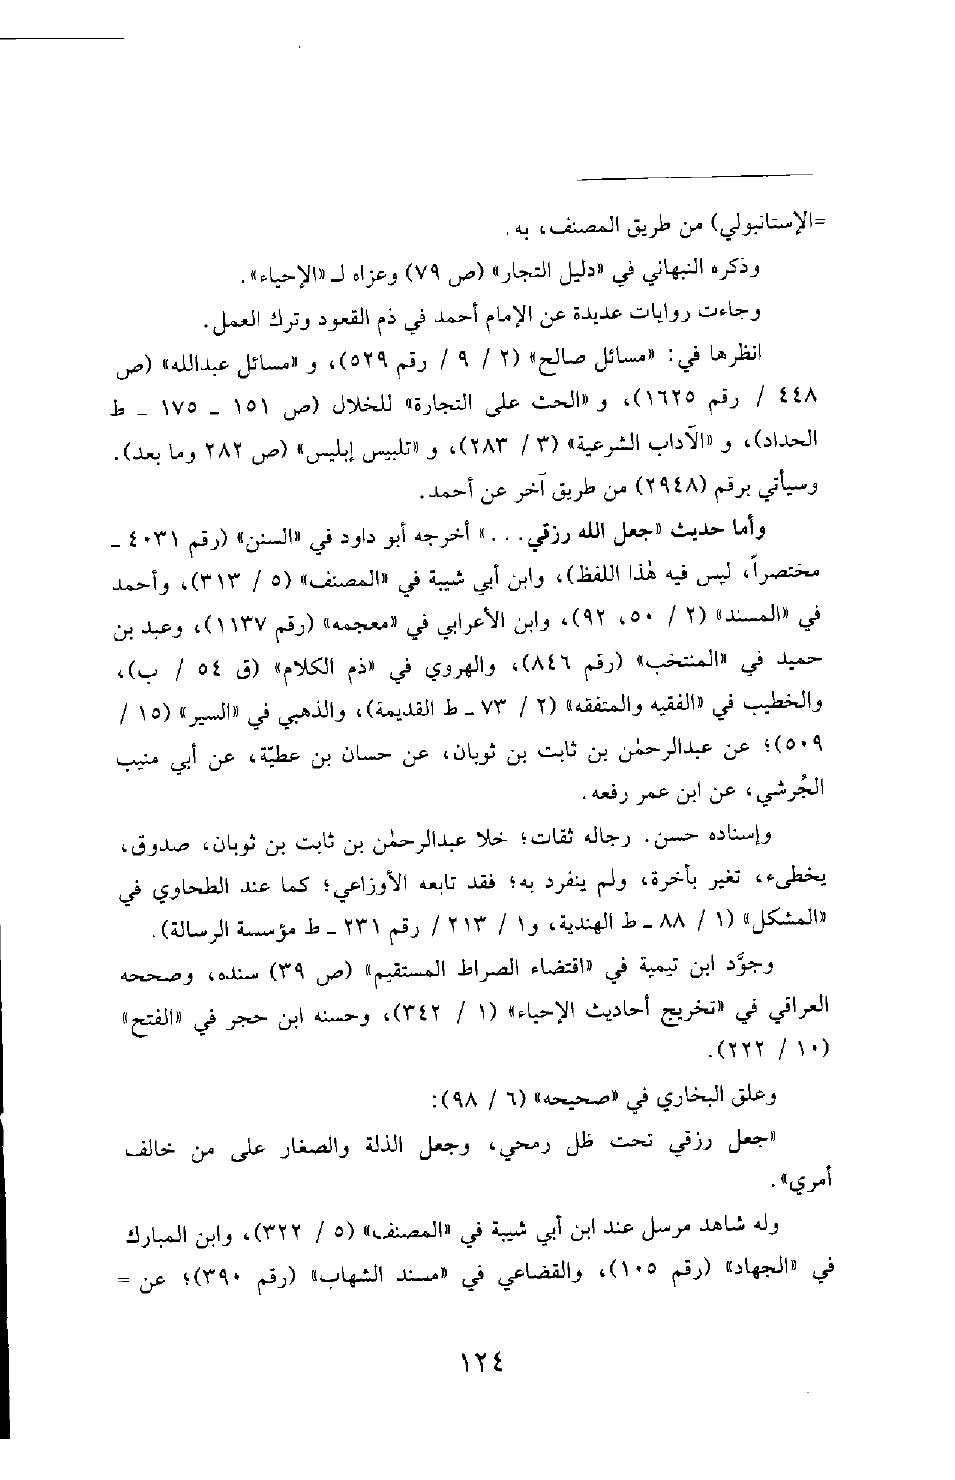 =الإستانبولي) من طريق المصنف، به.
وذكره النبهاني في «دليل التجار» (ص ٧٩) وعزاه لـ «الإحياء».
وجاءت روايات عديدة عن الإمام أحمد في ذم القعود وترك العمل.
انظرها في: «مسائل صالح» (٢ / ٩ / رقم ٥٢٩)، و «مسائل عبدالله» (ص
٤٤٨ / رقم ١٦٢٥)، و «الحث على التجارة» للخلال (ص ١٥١ - ١٧٥ - ط
الحداد)، و «الآداب الشرعية» (٣ / ٢٨٣)، و «تلبيس إبليس» (ص ٢٨٢ وما بعد).
وسيأتي برقم (٢٩٤٨) من طريق آخر عن أحمد.
وأما حديث «جعل الله رزقي...» أخرجه أبو داود في «السنن» (رقم ٤٠٣١ -
مختصراً، ليس فيه هٰذا اللفظ)، وابن أبي شيبة في «المصنف» (٥ / ٣١٣)، وأحمد
في «المسند» (٢ / ٥٠، ٩٢)، وابن الأعرابي في «معجمه» (رقم ١١٣٧)، وعبد بن
حميد في «المنتخب» (رقم ٨٤٦)، والهروي في «ذم الكلام» (ق ٥٤ / ب)،
والخطيب في «الفقيه والمتفقه» (٢ / ٧٣ - ط القديمة)، والذهبي في «السير» (١٥ /
٥٠٩)؛ عن عبدالرحمٰن بن ثابت بن ثوبان، عن حسان بن عطيّة، عن أبي منيب
الجُرشي، عن ابن عمر رفعه.
وإسناده حسن. رجاله ثقات؛ خلا عبدالرحمٰن بن ثابت بن ثوبان، صدوق،
يخطىء، تغير بأخرة، ولم ينفرد به؛ فقد تابعه الأوزاعي؛ كما عند الطحاوي في
«المشكل» (١ / ٨٨ - ط الهندية، و١ / ٢١٣ / رقم ٢٣١ - ط مؤسسة الرسالة).
وجوَّد ابن تيمية في «اقتضاء الصراط المستقيم» (ص ٣٩) سنده، وصححه
العراقي في «تخريج أحاديث الإحياء» (١ / ٣٤٢)، وحسنه ابن حجر في «الفتح»
(١٠ / ٢٢٢).
وعلق البخاري في «صحيحه» (٦ / ٩٨):
«جعل رزقي تحت ظل رمحي، وجعل الذلة والصغار على من خالف
أمري».
وله شاهد مرسل عند ابن أبي شيبة في «المصنف» (٥ / ٣٢٢)، وابن المبارك
في «الجهاد» (رقم ١٠٥)، والقضاعي في «مسند الشهاب» (رقم ٣٩٠)؛ عن =
١٢٤